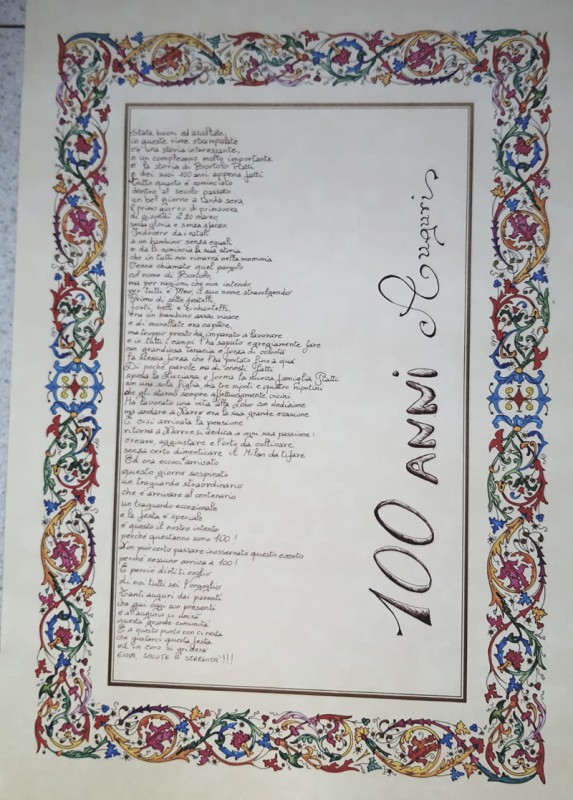 100 ANNI Auguri
State buoni ed ascoltate,
in queste rime strampalate
c'è una storia interessante,
e un compleanno molto importante
è la storia di Bortolo Platti
e dei suoi 100 anni appena fatti
Tutto quanto è cominciato
dentro al secolo passato
un bel giorno a tarda sera
il primo giorno di primavera
di giovedì il 20 marzo,
senza gloria e senza sfarzo,
dai natali
a un bambino senza eguali
e da lì comincia la sua storia
che in tutti noi rimarrà nella memoria
Venne chiamato quel pargolo
col nome di Bortolo,
ma per ragioni che non intendo
per tutti è il suo nome stravolgendo
Primo di sette fratelli,
forti, belli e birbantelli,
era un bambino assai vivace
e di monellate era capace,
ma troppo presto ha imparato a lavorare
e in tutti i campi l'ha saputo egregiamente fare
con grandiosa tenacia e forza di volontà
la stessa forza che l'ha portato fino a qua
Di poche parole ma di onesti fatti
sposa la Luciana e forma la nuova famiglia Platti
con una sola figlia, ma tre nipoti e quattro nipotini
che gli stanno sempre affettuosamente vicini
Ha lavorato una vita alla con dedizione
ma andare a era la sua grande evasione
E così arrivata la pensione
ritorna a e si dedica a ogni sua passione:
creare, aggiustare e l'orto da coltivare
senza certo dimenticare il Milan da tifare
Ed ora eccoci arrivato
questo giorno sospirato
un traguardo straordinario
che è arrivare al centenario
un traguardo eccezionale
e la festa è speciale
è questo il nostro intento
perché quest'anno sono 100!
Non può certo passare inosservato questo evento
perché nessuno arriva a 100!
E perciò dirti ti voglio
di noi tutti sei l'orgoglio
Tanti auguri dai parenti
che qui oggi son presenti
e all'augurio si unirà
questa grande comunità
E a questo punto non ci resta
che gustarci questa festa
ed in coro si griderà
GIOIA, SALUTE E SERENITÀ!!!